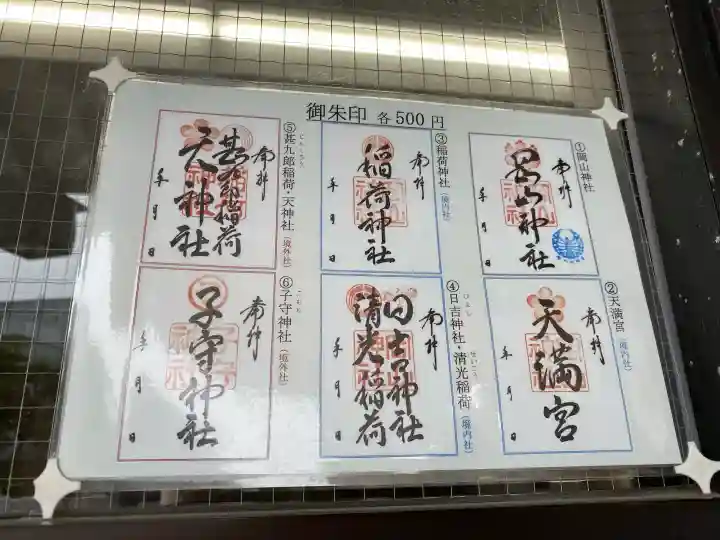 御朱印 各500円
①岡山神社
奉拝
岡山神社
年 月 日
②天満宮(境内社)
奉拝
天満宮
年 月 日
③稲荷神社(境内社)
奉拝
稲荷神社
年 月 日
④日吉神社・清光稲荷(境内社)
ひよし
せいこう
奉拝
日吉神社
清光稲荷
年 月 日
⑤甚九郎稲荷・天神社(境外社)
じんくろう
奉拝
甚九郎稲荷
天神社
年 月 日
⑥子守神社(境外社)
奉拝
子守神社
年 月 日